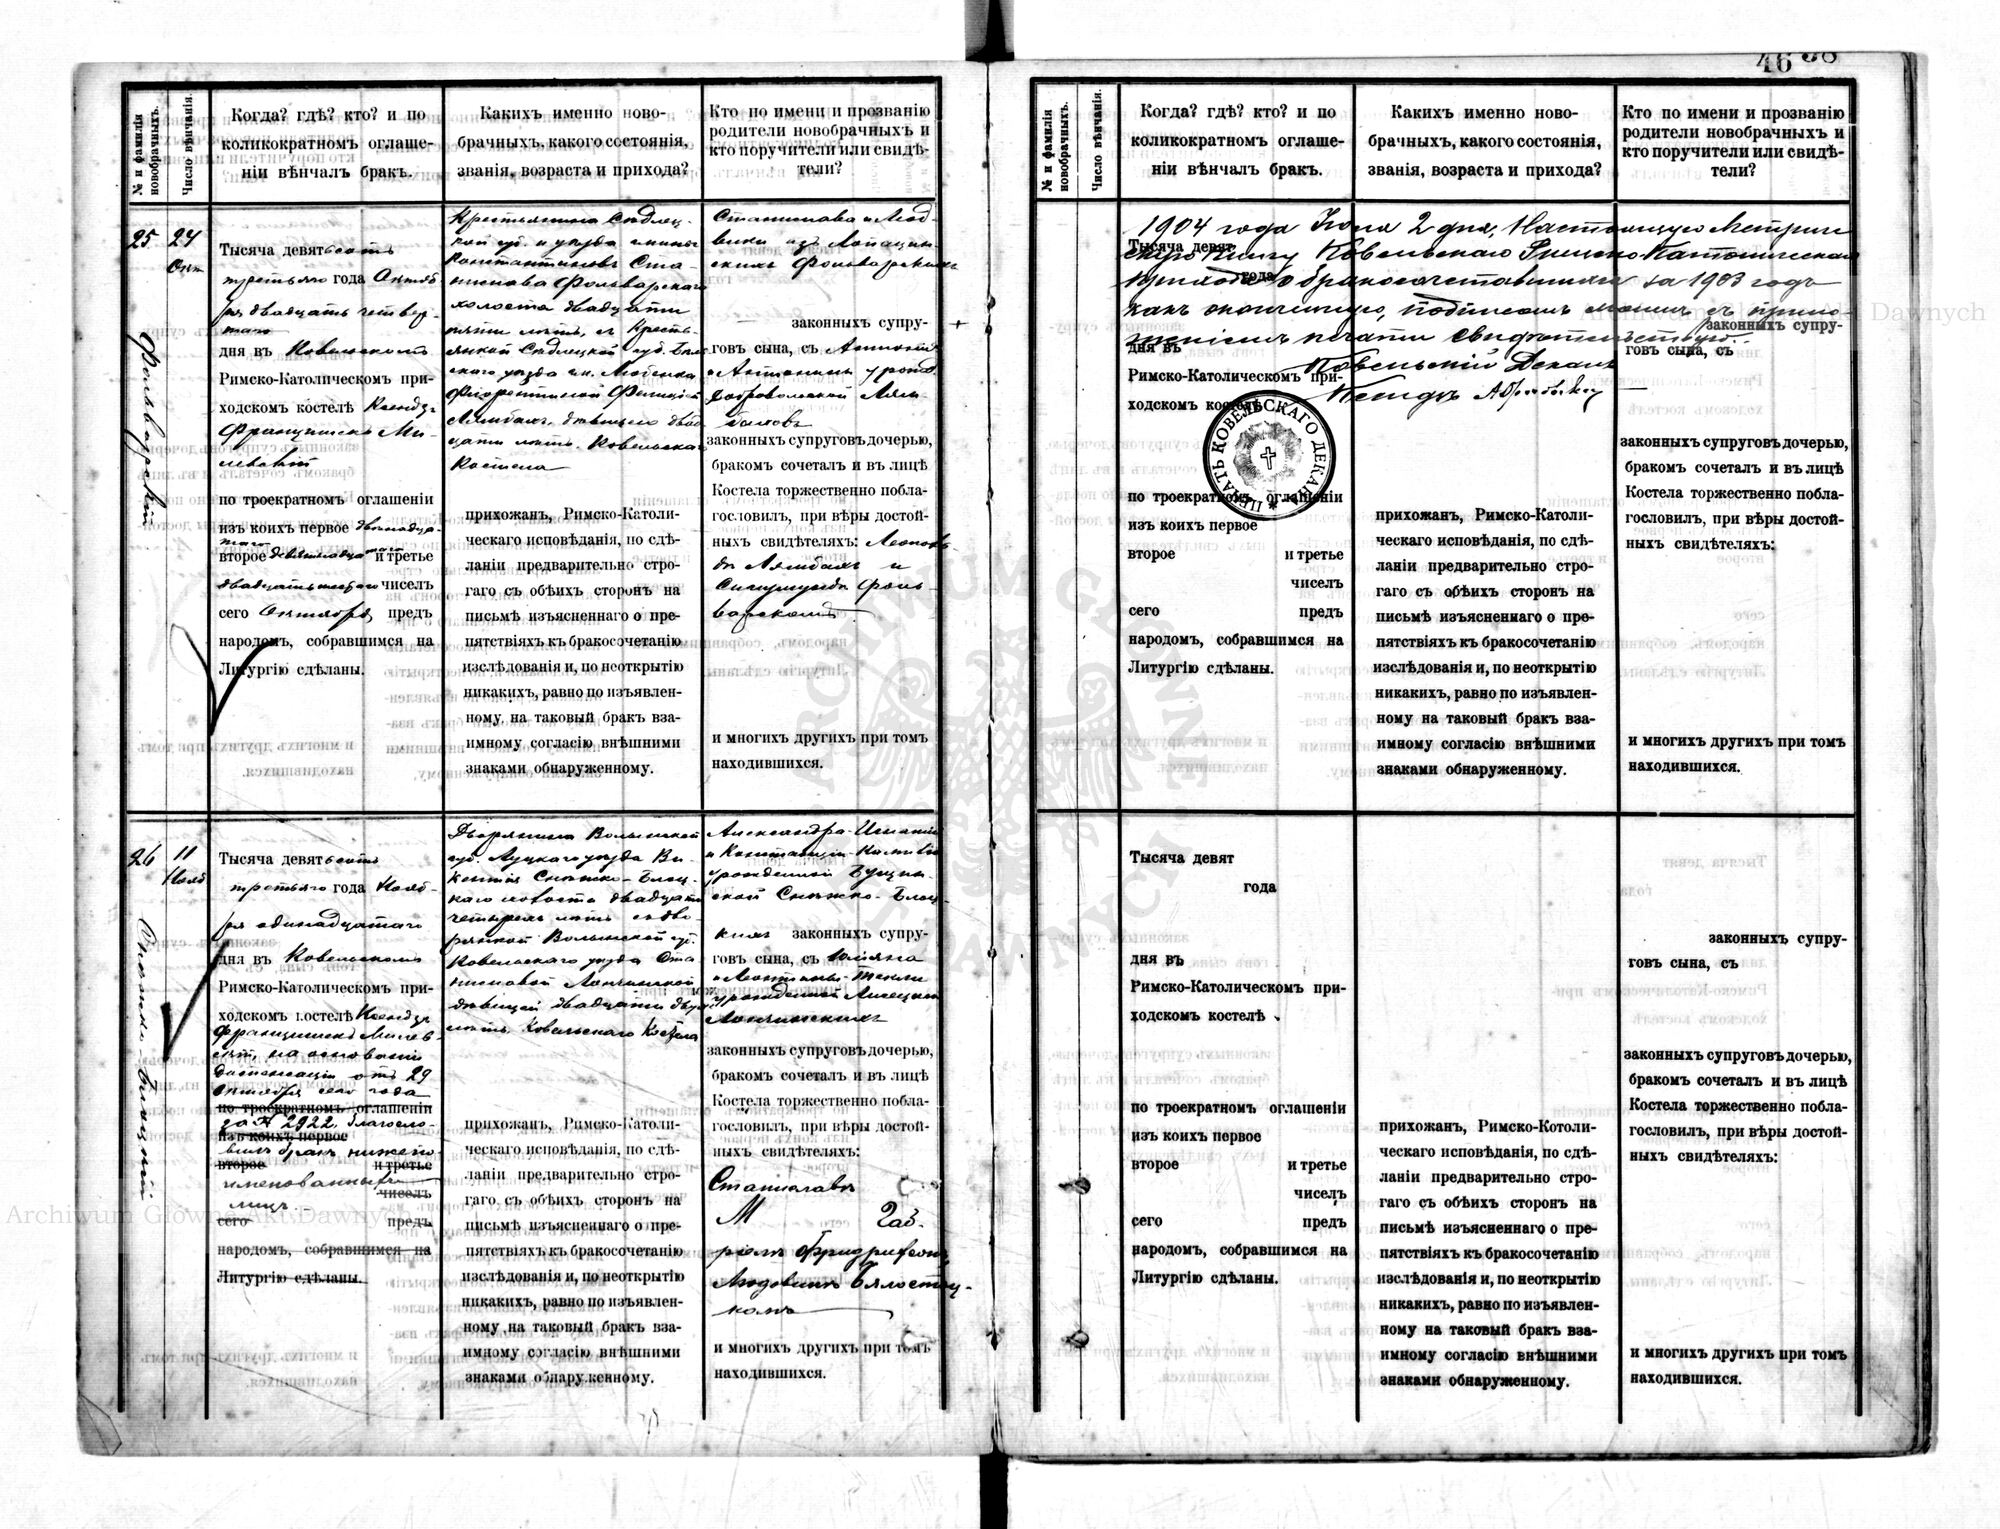 46 38
№ и фамилія новобрачныхъ.
Число вѣнчанія.
Когда? гдѣ? кто? и по
коликократномъ оглаше-
ніи вѣнчалъ бракъ.
Какихъ именно ново-
брачныхъ, какого состоянія,
званія, возраста и прихода?
Кто по имени и прозванію
родители новобрачныхъ и
кто поручители или свидѣ-
тели?
25
24
Окт
Фольварскій
Тысяча девятьсотъ
третьяго года Октяб
ря двадцать четвер-
таго
дня въ Ковельскомъ
Римско-Католическомъ при-
ходскомъ костелѣ Ксендзъ
Францишекъ Ми-
левскій
по троекратномъ оглашеніи
изъ коихъ первое двенадца-
таго
второе девятнадцатаго и третье
двадцать шестаго чиселъ
сего Октября предъ
народомъ, собравшимся на
Литургію сдѣланы.
Крестьянина Сѣдлец-
кой губ. и уѣзда гмины
Константиновъ Ста-
нислава Фольварскаго
холоста двадцати
пяти лѣтъ, съ Кресть-
янкой Сѣдлецкой губ. Бѣль
скаго уѣзда гм. Любенка
Флорентиной Фелиціей
Лямбахъ, дѣвицею двад
цати лѣтъ. Ковельскаго
Костела
прихожан, Римско-Католи-
ческаго исповѣданія, по сдѣ-
ланіи предварительно стро-
гаго съ обѣихъ сторонъ на
письмѣ изъясненнаго о пре-
пятствіяхъ къ бракосочетанію
изслѣдованія и, по неоткрытію
никакихъ, равно по изъявлен-
ному на таковый бракъ вза-
имному согласію внѣшними
знаками обнаруженному.
Станислава и Люд-
вики изъ Лопацин-
скихъ Фольварскихъ
законныхъ супру-
говъ сына, съ Антонія
и Антонины урожд.
Добровольской Лям-
баховъ
законныхъ супруговъ дочерью,
бракомъ сочеталъ и въ лицѣ
Костела торжественно побла-
гословилъ, при вѣры достой-
ныхъ свидѣтеляхъ: Леополь-
дѣ Лямбахъ и
Сигизмундѣ Фоль-
варскомъ
и многихъ другихъ при томъ
находившихся.
26
11
Нояб
Снѣжко-Блоцкій
Тысяча девятьсотъ
третьяго года Нояб-
ря одинадцатаго
дня въ Ковельскомъ
Римско-Католическомъ при-
ходскомъ костелѣ Ксендзъ
Францишекъ Милев-
скій, на основаніи
диспенсаціи отъ 29
Октября сего года
по троекратномъ оглашеніи
за № 2922, благосло-
изъ коихъ первое
вилъ бракъ нижепо-
второе и третье
именованныхъ
чиселъ
лицъ
сего предъ
народомъ, собравшимся на
Литургію сдѣланы.
Дворянина Волынской
губ. Луцкаго уѣзда Ви-
кентія Снѣжко-Блоц-
каго холоста двадцати
четырехъ лѣтъ съ дво-
рянкой Волынской губ.
Ковельскаго уѣзда Ста-
ниславой Лончинской
дѣвицей двадцати двухъ
лѣтъ Ковельскаго Костела
прихожан, Римско-Католи-
ческаго исповѣданія, по сдѣ-
ланіи предварительно стро-
гаго съ обѣихъ сторонъ на
письмѣ изъясненнаго о пре-
пятствіяхъ къ бракосочетанію
изслѣдованія и, по неоткрытію
никакихъ, равно по изъявлен-
ному на таковый бракъ вза-
имному согласію внѣшними
знаками обнаруженному.
Александра-Игнатія
и Констанціи-Камиліи
урожденной
ской Снѣжко-Блоц-
кихъ законныхъ супру-
говъ сына, съ Юліяна
и Леонтины-Теклы
урожденной
Лончинскихъ
законныхъ супруговъ дочерью,
бракомъ сочеталъ и въ лицѣ
Костела торжественно побла-
гословилъ, при вѣры достой-
ныхъ свидѣтеляхъ:
Станиславѣ
М Габ-
ріелѣ Фридрихсонъ,
Людовикѣ Бялостоц-
комъ
и многихъ другихъ при томъ
находившихся.
№ и фамилія новобрачныхъ.
Число вѣнчанія.
Когда? гдѣ? кто? и по
коликократномъ оглаше-
ніи вѣнчалъ бракъ.
Какихъ именно ново-
брачныхъ, какого состоянія,
званія, возраста и прихода?
Кто по имени и прозванію
родители новобрачныхъ и
кто поручители или свидѣ-
тели?
1904 года Іюня 2 дня, Настоящую Метриче
скую Книгу Ковельскаго Римско-Католическаго
прихода о бракосочетавшихся за 1903 годъ
какъ оконченную, подписомъ моимъ съ прило
женіемъ печати свидѣтельствую.
Ковельскій Деканъ
Ксендзъ
ПЕЧАТЬ КОВЕЛЬСКАГО ДЕКАНА
Тысяча девят
года
дня въ
Римско-Католическомъ при-
ходскомъ костелѣ
по троекратномъ оглашеніи
изъ коихъ первое
второе и третье
чиселъ
сего предъ
народомъ, собравшимся на
Литургію сдѣланы.
прихожан, Римско-Католи-
ческаго исповѣданія, по сдѣ-
ланіи предварительно стро-
гаго съ обѣихъ сторонъ на
письмѣ изъясненнаго о пре-
пятствіяхъ къ бракосочетанію
изслѣдованія и, по неоткрытію
никакихъ, равно по изъявлен-
ному на таковый бракъ вза-
имному согласію внѣшними
знаками обнаруженному.
законныхъ супру-
говъ сына, съ
законныхъ супруговъ дочерью,
бракомъ сочеталъ и въ лицѣ
Костела торжественно побла-
гословилъ, при вѣры достой-
ныхъ свидѣтеляхъ:
и многихъ другихъ при томъ
находившихся.
Тысяча девят
года
дня въ
Римско-Католическомъ при-
ходскомъ костелѣ
по троекратномъ оглашеніи
изъ коихъ первое
второе и третье
чиселъ
сего предъ
народомъ, собравшимся на
Литургію сдѣланы.
прихожан, Римско-Котоли-
ческаго исповѣданія, по сдѣ-
ланіи предварительно стро-
гаго съ обѣихъ сторонъ на
письмѣ изъясненнаго о пре-
пятствіяхъ къ бракосочетанію
изслѣдованія и, по неоткрытію
никакихъ, равно по изъявлен-
ному на таковый бракъ вза-
имному согласію внѣшними
знаками обнаруженному.
законныхъ супру-
говъ сына, съ
законныхъ супруговъ дочерью,
бракомъ сочеталъ и въ лицѣ
Костела торжественно побла-
гословилъ, при вѣры достой-
ныхъ свидѣтеляхъ:
и многихъ другихъ при томъ
находившихся.
Archiwum Główne Akt Dawnych
Archiwum Główne Akt Dawnych
ARCHIWUM GŁÓWNE AKT DAWNYCH